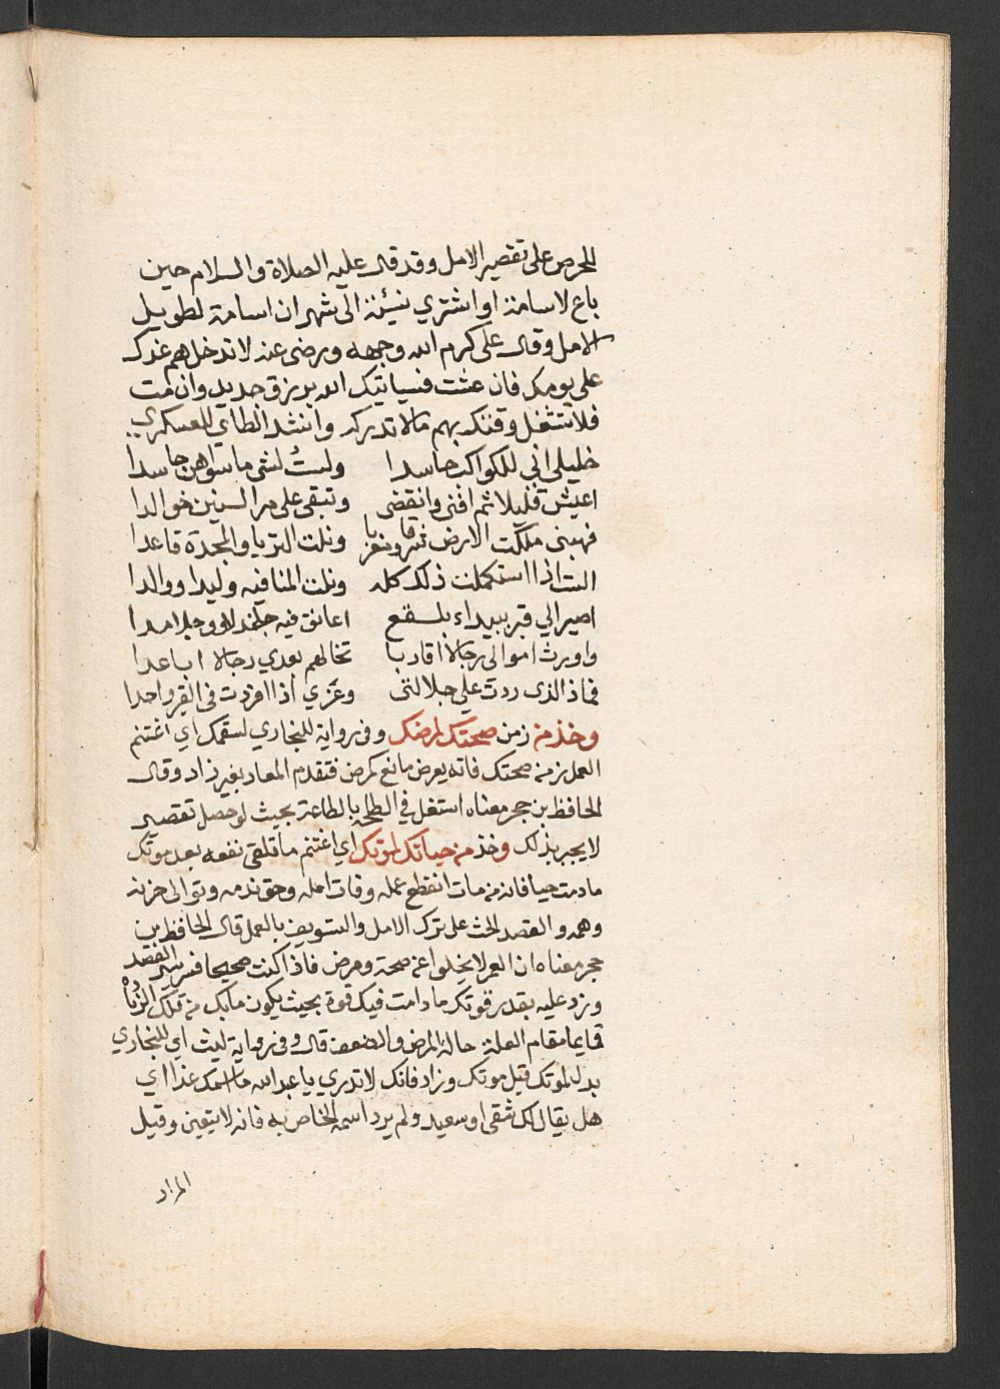 للحرص على تقصير الامل وقد قال عليه الصلاة والسلام حين
باع لاسامة او اشتري نسئة الى شهر ان اسامة لطويل
الامل وقال على كرم الله وجهه ورضى عنه لا تدخل هم غدك
على يومك فان عشت فسياتيك الله برزق جديد وان مت
فلا تشغل وقتك بهم ما لا تدركه وانشد الطاي للعسكري
خليلي اني للكواكب حاسدا ولست لشي ما سواهن حاسدا
اعيش قليلا ثم افنى وانقضى وتبقى على مر السنين خوالدا
فهبنى ملكت الارض شرقا ومغربا ونلت الثريا والمجرة قاعدا
الست اذا استكملت ذلك كله ونلت المنا فيه وليدا ووالدا
اصير الي قبر ببيداء بلقع اعانق فيه جندلا وجلامدا
واورث اموالى رجالا اقاربا تخالهم بعدي رجالا اباعدا
فماذا الذى ردت علي جلالتى وعزي اذا افردت فى القبر واحدا
وخذ من زمن صحتك لمرضك وفى رواية للبخاري لسقمك اي اغتنم
العمل زمن صحتك فانه يعرض مانع كمرض فتقدم المعاد بغير زاد وقال
الحافظ بن حجر معناه اشتغل في الصحة بالطاعة بحيث لو حصل تقصير
لا يجبر بذلك وخذ من حياتك لموتك اي اغتنم ما تلقى نفعه بعد موتك
ما دمت حيا فانه من مات انقطع عمله وفات امله وحق ندمه وتوالى حزنه
وهمه والقصد الحث على ترك الامل والتسويف بالعمل قال الحافظ بن
حجر معناه ان العمر لا يخلوا عن صحة ومرض فاذا كنت صحيحا فسر سير القصد
وزد عليه بقدر قوتك ما دامت فيك قوة بحيث يكون ما بك من تلك الزيادة
قايما مقام العلة حالة المرض والضعف قال وفى رواية ليث اي للبخاري
بدل لموتك قبل موتك وزاد فانك لا تدري يا عبد الله ما اسمك غدا اي
هل يقال لك شقى او سعيد ولم يرد اسمه الخاص به فانه لا يتعين وقيل
المراد